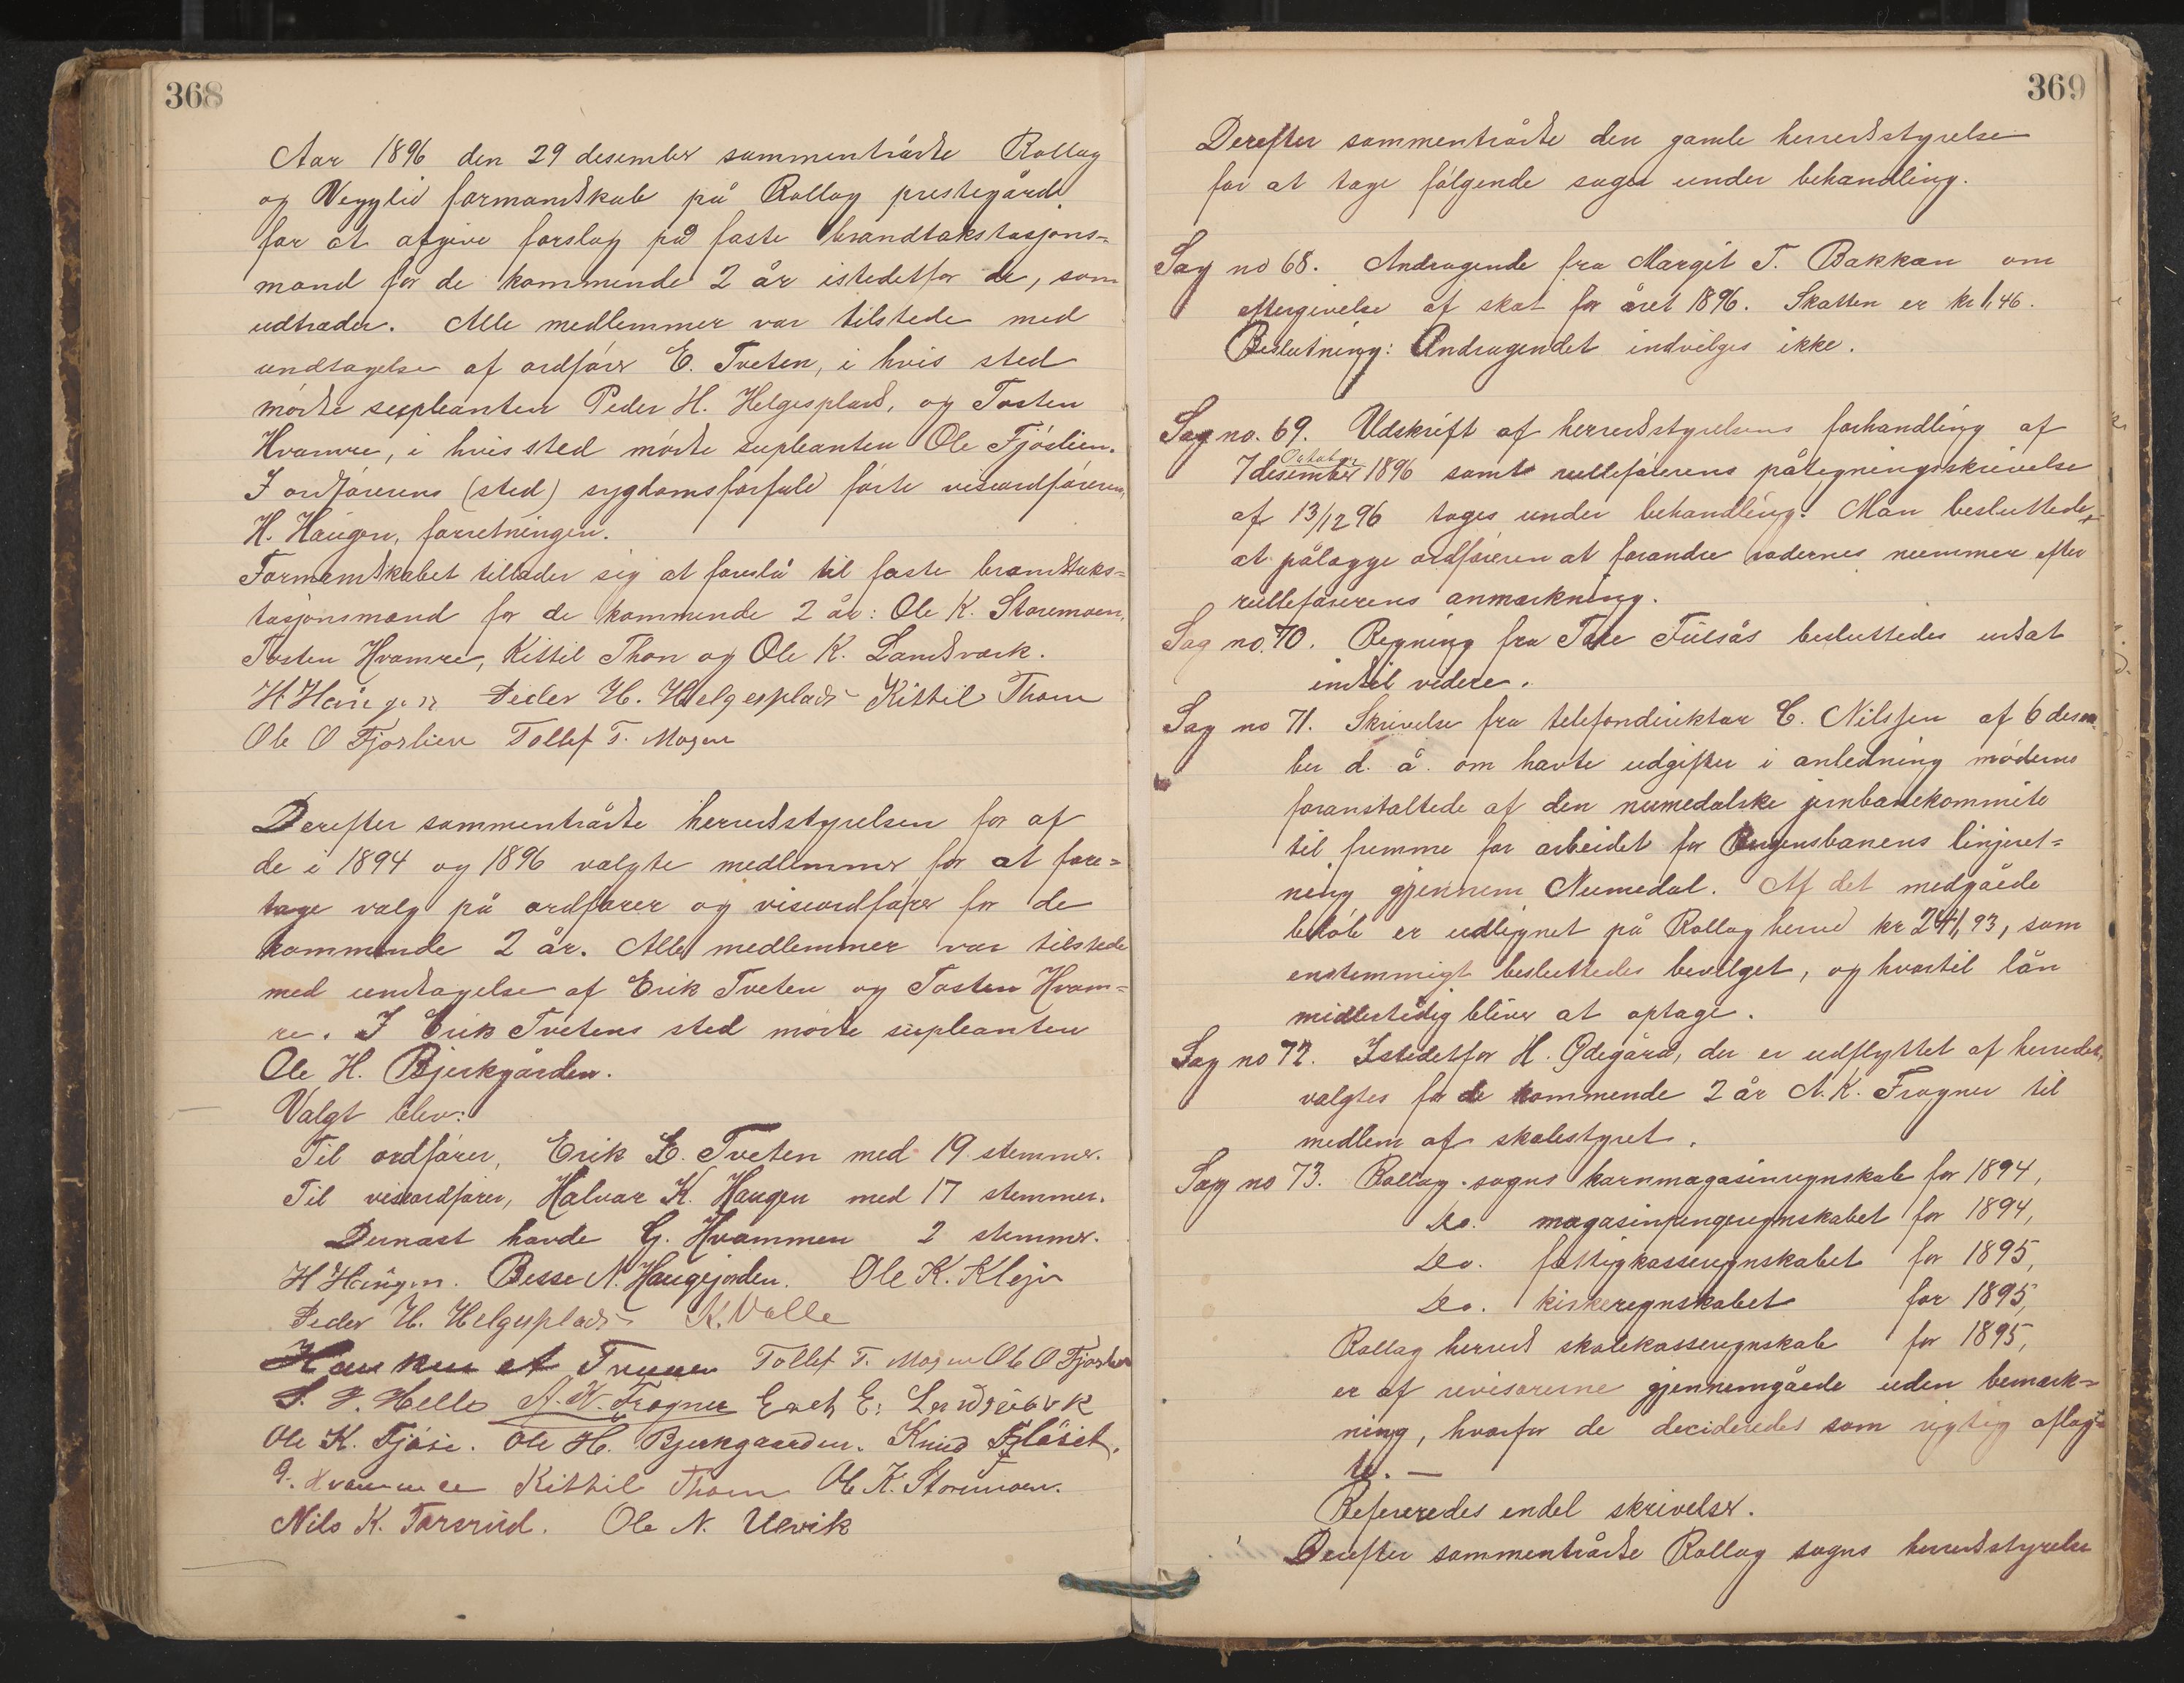 368
Aar 1896 den 29 desember sammentrådte Rollag
og Veggli formandskab på Rollag prestegård
for at afgive forslag på faste brandtakstasjons=
mænd for de kommende 2 år istedetfor de, som
udtræder. Alle medlemmer var tilstede med
undtagelse af ordfører E. Tveten, i hvis sted
mødte supleanten Peder H. Helgesplads, og Tosten
Hvamre, i hvis sted mødte supleanten Ole Fjøslien.
I ordførerens (sted) sygdomsforfald førte viseordføreren,
H. Haugen, forretningen.
Formandskabet tillader sig at foreslå til faste brandtaks=
tasjonsmænd for de kommende 2 år: Ole K. Storemoen,
Tosten Hvamre, Kittil Thon og Ole K. Landsværk.
H Haugen Peder H. Helgesplads Kittil Thon
Ole O Fjøslien Tollef T. Mogen
Derefter sammentrådte herredsstyrelsen for af
de i 1894 og 1896 valgte medlemmer for at fore=
tage valg på ordfører og viseordfører for de
kommende 2 år. Alle medlemmer var tilstede
med undtagelse af Erik Tveten og Tosten Hvam=
re. I Erik Tvetens sted mødte supleanten
Ole H. Bjerkgården.
Valgt blev:
Til ordfører, Erik E. Tveten med 19 stemmer.
Til viseordfører, Halvar K. Haugen med 17 stemmer.
Dernæst havde G. Hvammen 2 stemmer.
H Haugen. Besse N. Haugejorden. Ole K. Kleja
Peder H. Helgesplads K. Valle
Tollef T. Mogen Ole O Fjøslien
Helle A. K. Fragner E.
Ole K. Fjøse. Ole H. Bjerkgaarden. Knud Fjøset.
G. Hvammen Kittil Thon Ole K. Storemoen.
Nils K. Tarerud. Ole N. Ulvik
369
Derefter sammentrådte den gamle herredsstyrelse
for at tage følgende sager under behandling.
Sag no 68. Andragende fra Margit T. Bakkan om
eftergivelse af skat for året 1896. Skatten er kr 1,46.
Beslutning: Andragendet indvilges ikke.
Sag no. 69. Udskrift af herredsstyrelsens forhandling af
Oktober
7 desember 1896 samt rulleførerens påtegningsskrivelse
af 13/12 96 tages under behandling. Man besluttede,
at pålægge ordføreren at forandre rodernes nummer efter
rulleførerens anmærkning.
Sag no. 70. Regning fra Tore Fulsås besluttedes udsat
indtil videre.
Sag no 71. Skrivelse fra telefondirektør C. Nilssen af 6 desem
ber d. å. om havte udgifter i anledning møderne
foranstaltede af den numedalske jernbanekommite
til fremme for arbeidet for Bergensbanens linjeret=
ning gjennem Numedal. Af det medgåede
beløb er udlignet på Rollag herred kr 241,93, som
enstemmigt besluttedes bevilget, og hvortil lån
midlertidig bliver at optage.
Sag no 72. Istedetfor H. Ødegård, der er udflyttet af herredet,
valgtes for de kommende 2 år A. K. Fragner til
medlem af skolestyret.
Sag no 73. Rollag sogns kornmagasinregnskab for 1894,
Do. magasinpengeregnskabet for 1894,
Do. fattigkasseregnskabet for 1895,
Do. kirkeregnskabet for 1895,
Rollag herred skolekasseregnskab for 1895,
er af revisorerne gjennemgåede uden bemærk=
ning, hvorfor de decideredes som rigtig aflag=
te. —
Refereredes endel skrivelser.
Derefter sammentrådte Rollag sogns herredsstyrelse